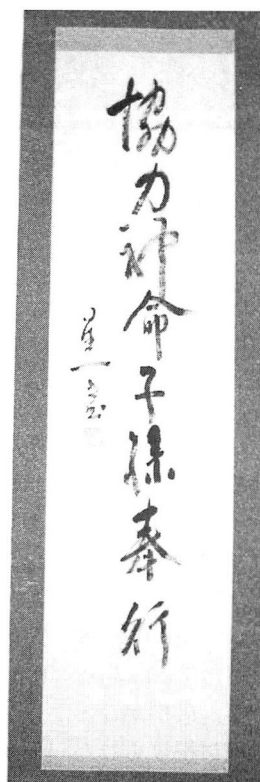 協力神命子孫奉行
星一書